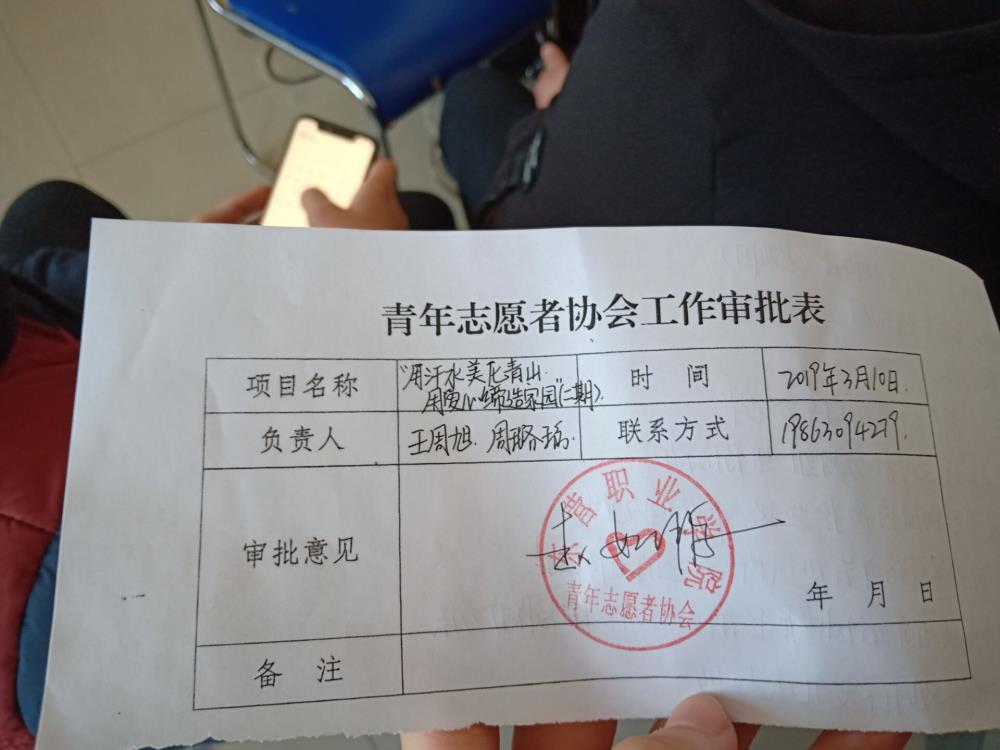 青年志愿者协会工作审批表
项目名称 "用汗水美化青山 时 间 2019年3月10日.
用爱心缔造家园"(二期)
负责人 王周旭. 周璐瑶 联系方式 19863094279.
东营职业学院
审批意见
青年志愿者协会
年 月 日
备 注